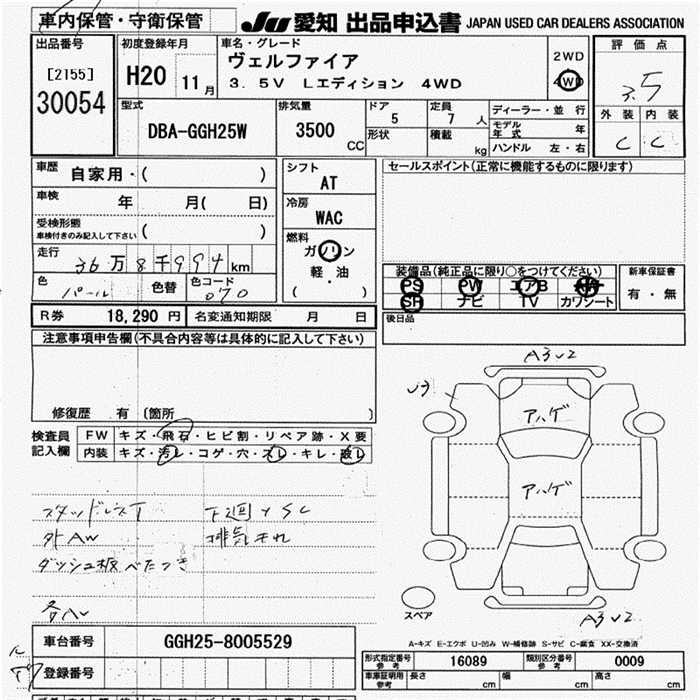 車内保管・守衛保管
JU 愛知 出品申込書 JAPAN USED CAR DEALERS ASSOCIATION
出品番号 初度登録年月 車名・グレード 評価点
[2155] H20 11月 ヴェルファイア 2WD
30054 3.5V Lエディション 4WD 4WD 3.5
型式 排気量 ドア 定員 ディーラー・並行 外装 内装
DBA-GGH25W 3500 CC 5 7 人 モデル年式 年 C C
形状 積載 kg ハンドル 左・右
車歴 自家用・( ) シフト AT セールスポイント(正常に機能するものに限ります)
車検 年 月( 日) 冷房 WAC
受検形態 ( )
車検付きのみ記入して下さい
燃料 ガソリン
軽・油
( )
走行 36万8千994km
色 パール 色替 色コード 070
装備品(純正品に限り○をつけてください) 新車保証書
PS PW エアB 有・無
SR ナビ TV カワシート
R券 18,290 円 名変通知期限 月 日 後日品
注意事項申告欄(不具合内容等は具体的に記入して下さい)
修復歴 有 〔箇所 〕
検査員 FW キズ・飛石・ヒビ割・リペア跡・X要
記入欄 内装 キズ・汚レ・コゲ・穴・スレ・キレ・破レ
A3 U2
U3
アハゲ
アハゲ
スタッドレスT 下廻り SC
外AW 排気モれ
ダッシュ板べたつき
各AU
スペア
A3 U2
A-キズ E-エクボ U-凹み W-補修跡 S-サビ C-腐食 XX-交換済
車台番号 GGH25-8005529
登録番号
形式指定番号 参考 16089 類別区分番号 参考 0009
車庫証明用 参考 長さ cm 幅 cm 高さ cm